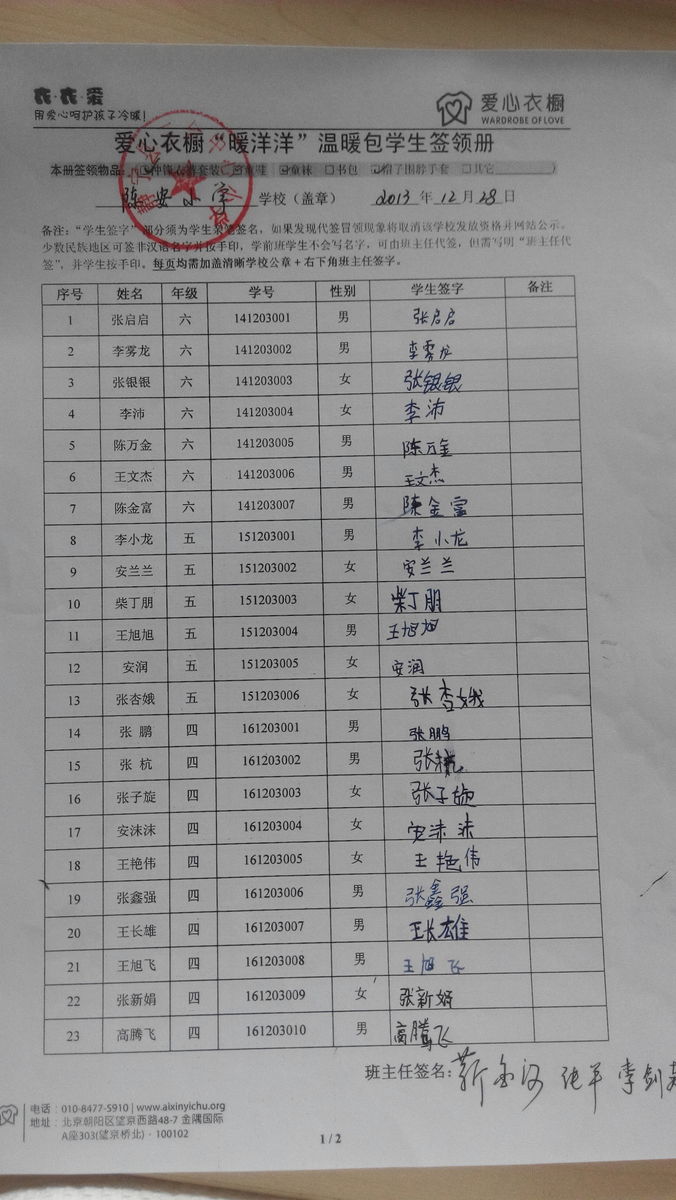 衣·衣·爱
用爱心呵护孩子冷暖!
爱心衣橱
WARDROBE OF LOVE
爱心衣橱“暖洋洋”温暖包学生签领册
本册签领物品: 童鞋 童袜 □书包 帽子围脖手套 □其它
陈安小学 学校（盖章） 2013 年 12 月 28 日
备注：“学生签字”部分须为学生亲笔签名，如果发现代签冒领现象将取消该学校发放资格并网站公示。
少数民族地区可签非汉语名字并按手印，学前班学生不会写名字，可由班主任代签，但需写明“班主任代
签”，并学生按手印。每页均需加盖清晰学校公章+右下角班主任签字。
序号 姓名 年级 学号 性别 学生签字 备注
1 张启启 六 141203001 男 张启启
2 李雾龙 六 141203002 男 李雾龙
3 张银银 六 141203003 女 张银银
4 李沛 六 141203004 女 李沛
5 陈万金 六 141203005 男 陈万金
6 王文杰 六 141203006 男 王文杰
7 陈金富 六 141203007 男 陈金富
8 李小龙 五 151203001 男 李小龙
9 安兰兰 五 151203002 女 安兰兰
10 柴丁朋 五 151203003 女 柴丁朋
11 王旭旭 五 151203004 男 王旭旭
12 安润 五 151203005 女 安润
13 张杏娥 五 151203006 女 张杏娥
14 张 鹏 四 161203001 男 张鹏
15 张 杭 四 161203002 男 张杭
16 张子旋 四 161203003 女 张子旋
17 安沫沫 四 161203004 女 安沫沫
18 王艳伟 四 161203005 女 王艳伟
19 张鑫强 四 161203006 男 张鑫强
20 王长雄 四 161203007 男 王长雄
21 王旭飞 四 161203008 男 王旭飞
22 张新娟 四 161203009 女 张新娟
23 高腾飞 四 161203010 男 高腾飞
班主任签名: 李剑
电话：010-8477-5910 | www.aixinyichu.org
地址：北京朝阳区望京西路48-7 金隅国际
A座303(望京桥北)·100102
1 / 2